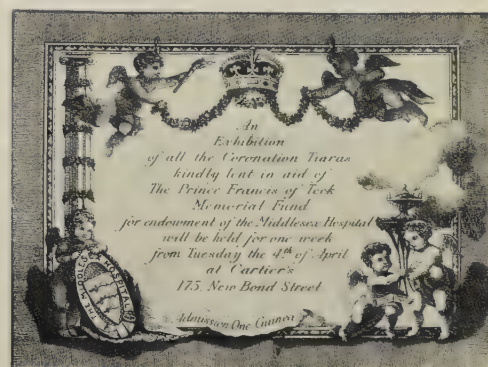 An
Exhibition
of all the Coronation Tiaras
kindly lent in aid of
The Prince Francis of Teck
Memorial Fund
for endowment of the Middlesex Hospital
will be held for one week
from Tuesday the 4th of April
at Cartier's
175, New Bond Street
Admission One Guinea
THE MIDDLESEX HOSPITAL